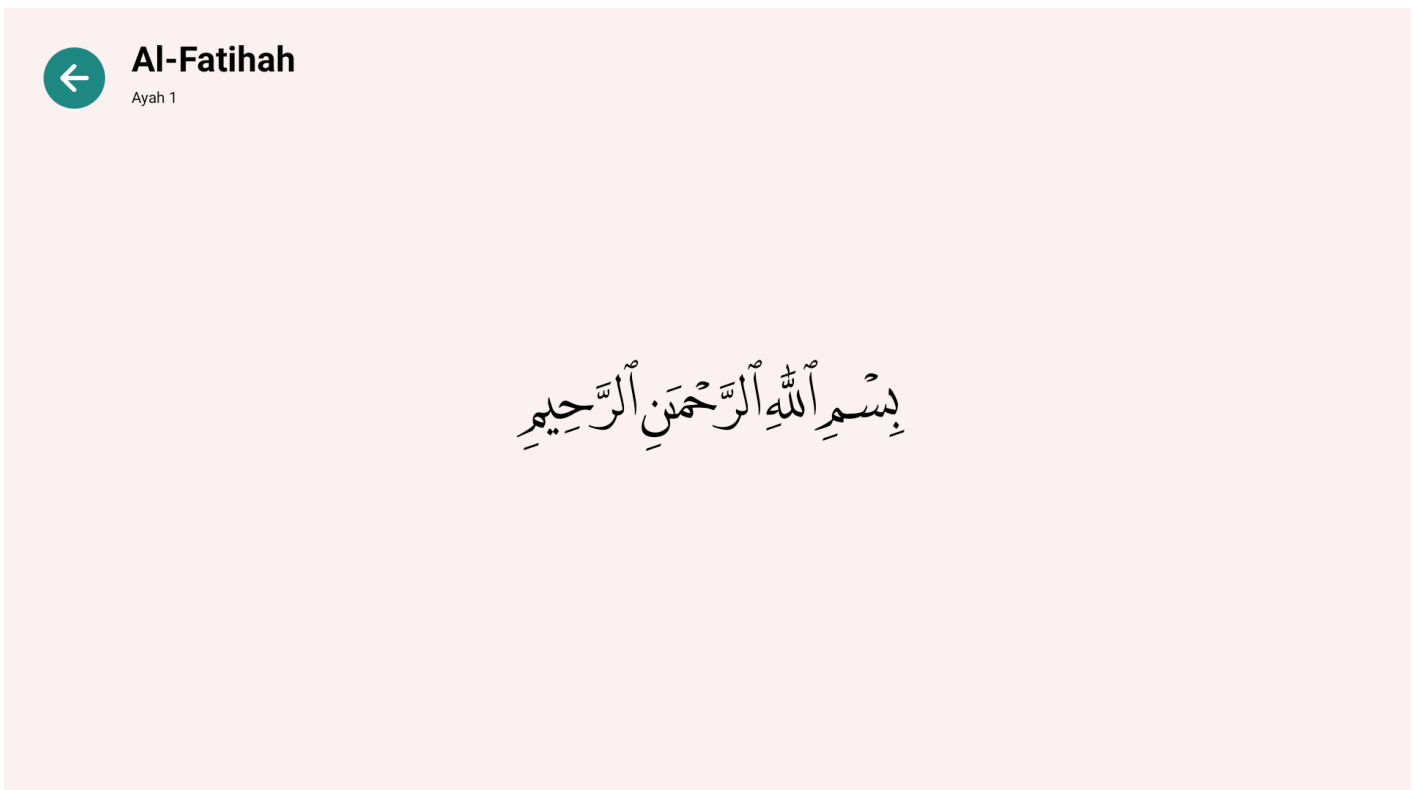 Al-Fatihah
Ayah 1
بِسْمِ ٱللَّهِ ٱلرَّحْمَـٰنِ ٱلرَّحِيمِ